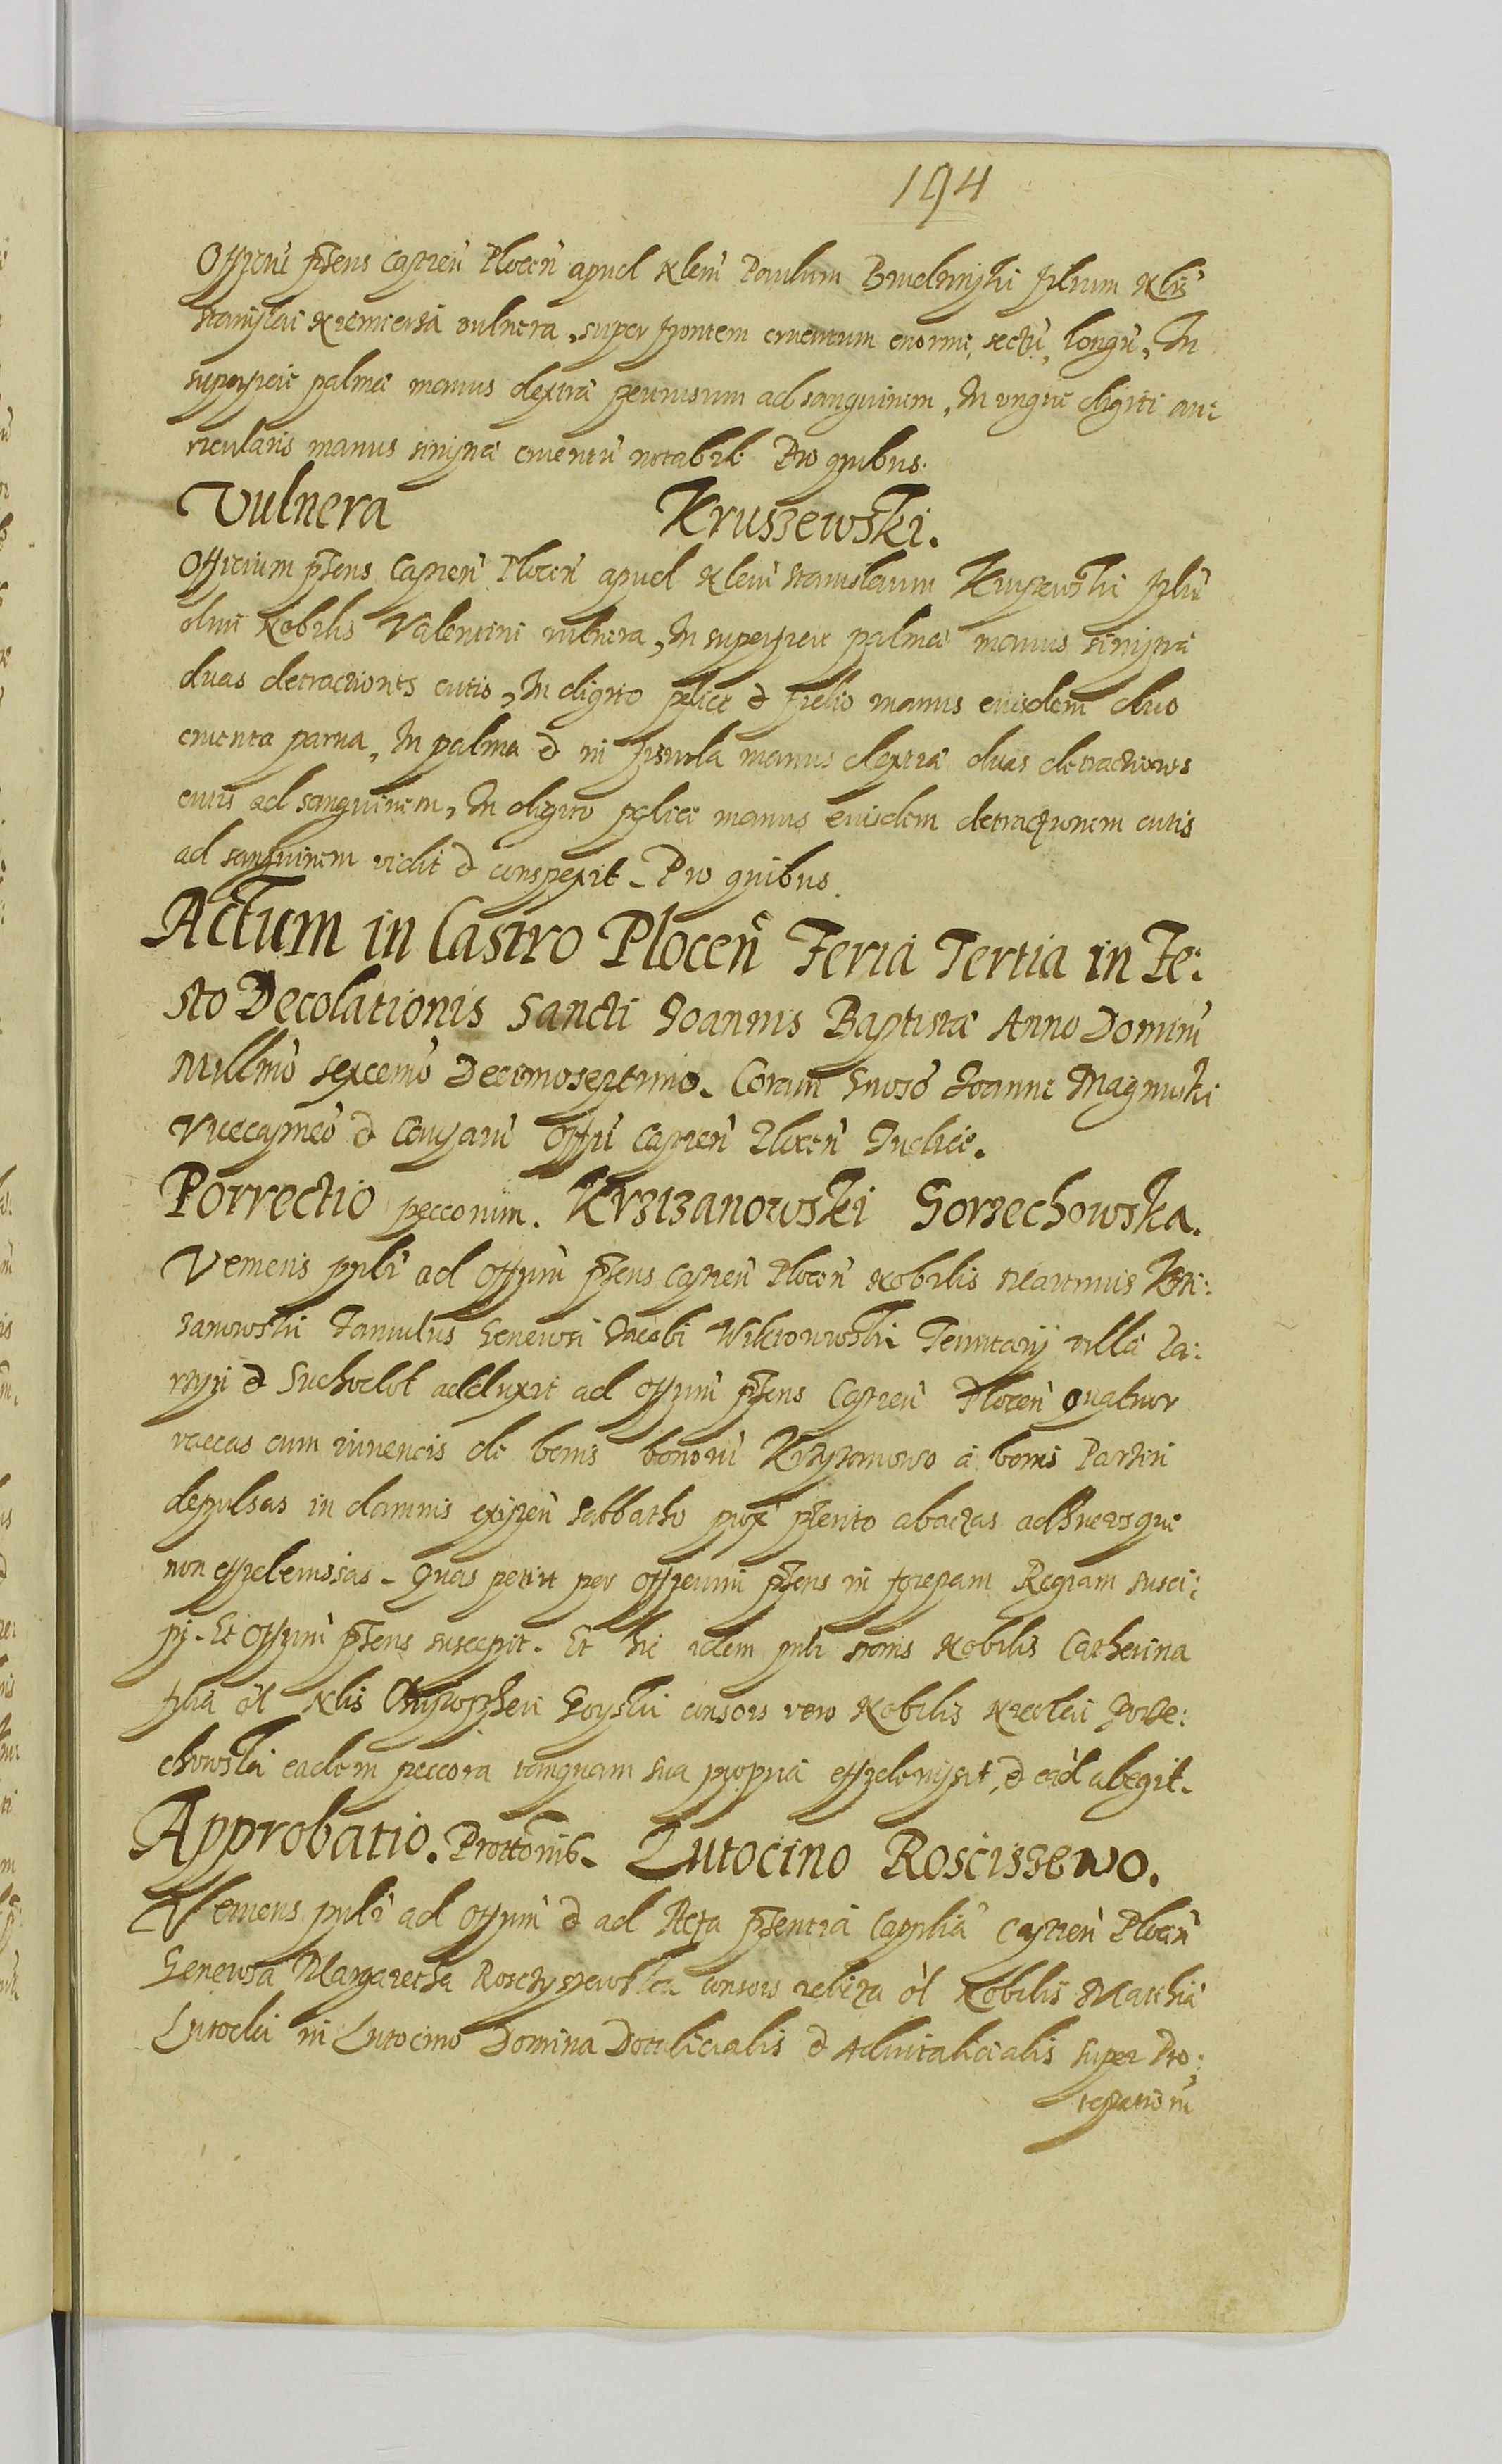 194
Officiu p̃sens Castren̄ Plocen̄ apud Nlem Paulum Brudzinski filium Nlis
Stanislai Niemiersa vulnera, super frontem cruentum enorme, sectū, longū, In
superficie palmæ manus dextræ perrasum ad sanguinem, In ungue digiti au:
ricularis manus sinistræ cruentū notabile Pro quibus.
Vulnera Kruszewski.
Officium p̃sens Castren̄ Plocen̄ apud Nlem Stanislaum Kruszewski filiū
olim Nobilis Valentini vulnera, In superficie palmæ manus sinistræ
duas detractiones cutis, In digito police & medio manus eiusdem duo
cruenta parua, In palma & in manus dextræ duas detractiones
cutis ad sanguinem, In digito police manus eiusdem detractionem cutis
ad sanguinem vidit & conspexit. Pro quibus.
Actum in Castro Plocen̄ Feria Tertia in Fe:
sto Decolationis Sancti Joannis Baptistæ Anno Domini
Millmō sexcemō Decimoseptimo. Coram Gnoso Joanne Magnuski
Vicecapneō & Comissariū Offii Castren̄ Plocen̄ Judice.
Porrectio peccorum. Krzizanowski Gorzechowska.
Veniens publi ad Offium p̃sens Castren̄ Plocen̄ Nobilis Krzi:
zanowski Famulus Generosi Jacobi Tenutarij villæ Za:
& Suchodol adduxit ad Offium p̃sens Castren̄ Plocen̄ quatuor
vaccas cum iuuencis de bonis bonorū Krzyzanowo a bonis
depulsas in damnis existen̄ Sabbatho prox p̃terito abactas adhucsque
non effideiussas. Quas petiit per Officium p̃sens in forepam Regiam susci:
pi. Et Offium p̃sens suscepit. Et hic idem publi stans Nobilis Catherina
filia ol Nlis Christopheri Gorski consors vero Nobilis Nicolai Gorze:
chowski eadem peccora tanquam sua propria effideiussit, & ead abegit.
Approbatio. Prottonis. Lutocino Roscissewo.
Veniens publi ad Offium & ad Acta p̃sentia Capnlia Castren̄ Plocen̄
Generosa Margaretha Rosciszewska consors relicta ol Nobilis Matthiæ
Lutocki in Lutocino Domina Dotalicialis & Aduitalicialis super Pro:
testationū